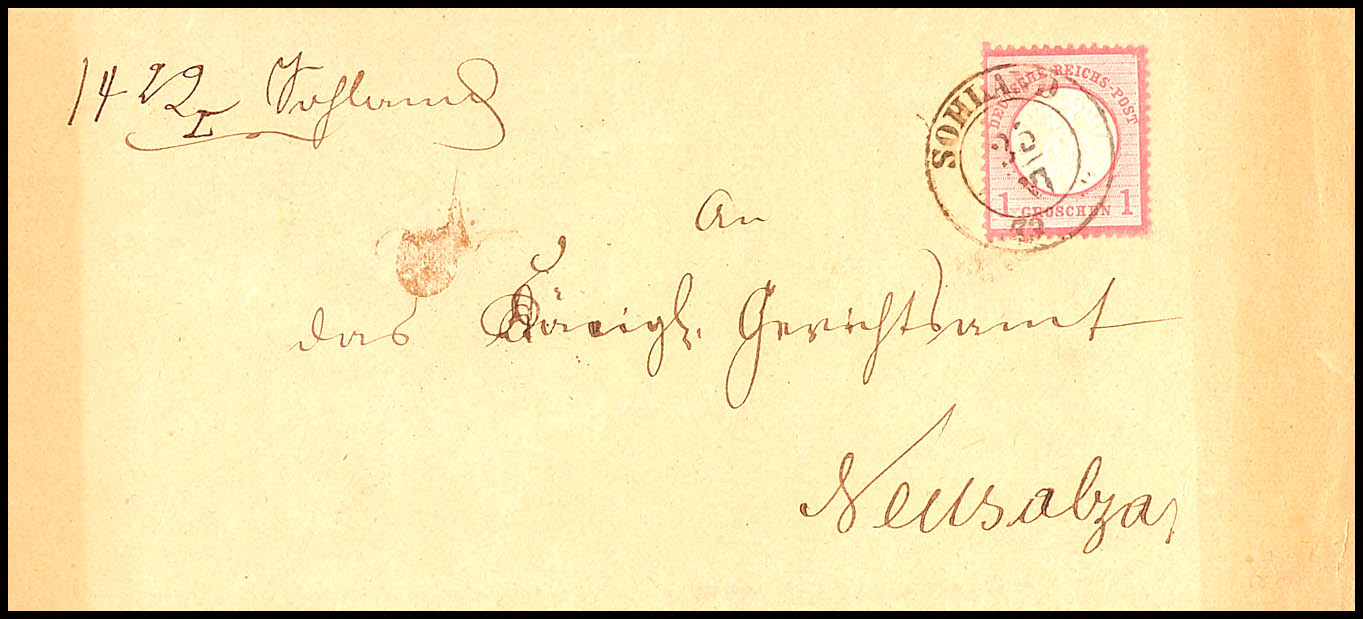 1422 I Sohland
DEUTSCHE REICHS-POST
1 GROSCHEN 1
SOHLAND
An
das Königl. Gerichtsamt
Neusalza